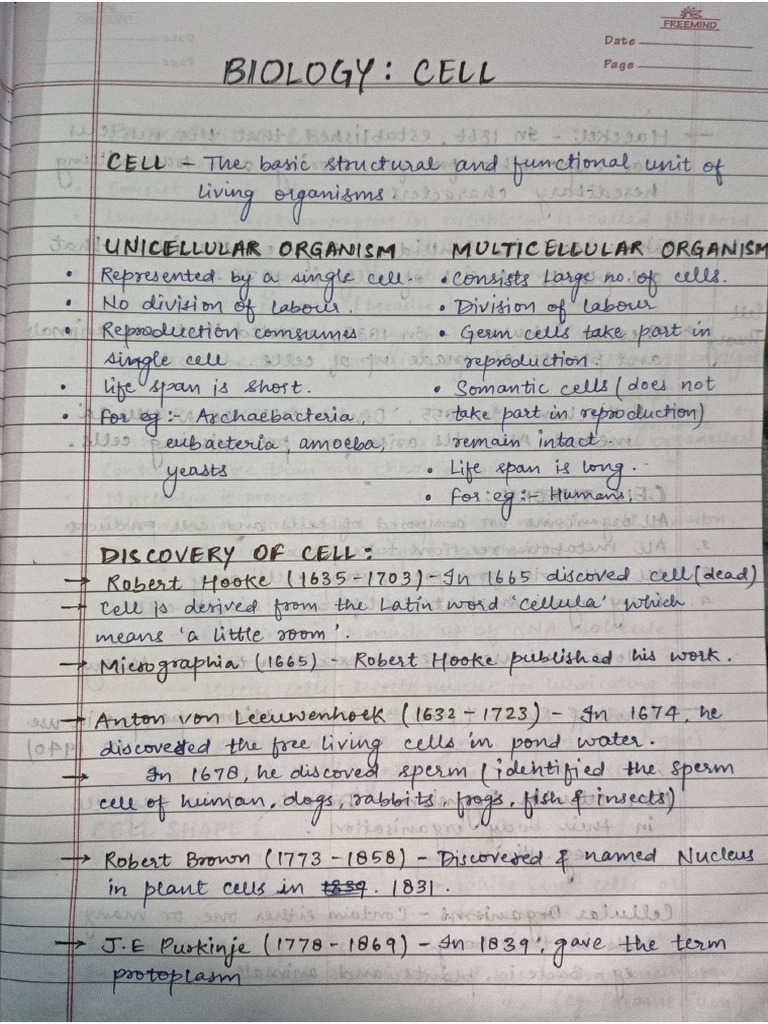 FREEMIND
Date
Page
BIOLOGY: CELL
CELL - The basic structural and functional unit of
living organisms.
UNICELLULAR ORGANISM
• Represented by a single cell.
• No division of labour.
• Reproduction comsumes
single cell
• Life span is short.
• For eg:- Archaebacteria,
eubacteria, amoeba,
yeasts
MULTICELLULAR ORGANISM
• Consists Large no. of cells.
• Division of labour
• Germ cells take part in
reproduction.
• Somantic cells (does not
take part in reproduction)
remain intact.
• Life span is long.
• For: eg:- Humans,
DISCOVERY OF CELL:
→ Robert Hooke (1635-1703)-In 1665 discoved cell(dead)
→ Cell is derived from the Latin word 'cellula' which
means 'a little room'.
→ Micrographia (1665) - Robert Hooke published his work.
→ Anton von Leeuwenhoek (1632-1723) - In 1674, he
discovered the free living cells in pond water.
→ In 1678, he discoved sperm (identified the sperm
cell of human, dogs, rabbits, frogs, fish & insects)
→ Robert Brown (1773-1858) - Discovered & named Nucleus
in plant cells in 1839. 1831.
→ J.E Purkinje (1778-1869) - In 1839, gave the term
protoplasm